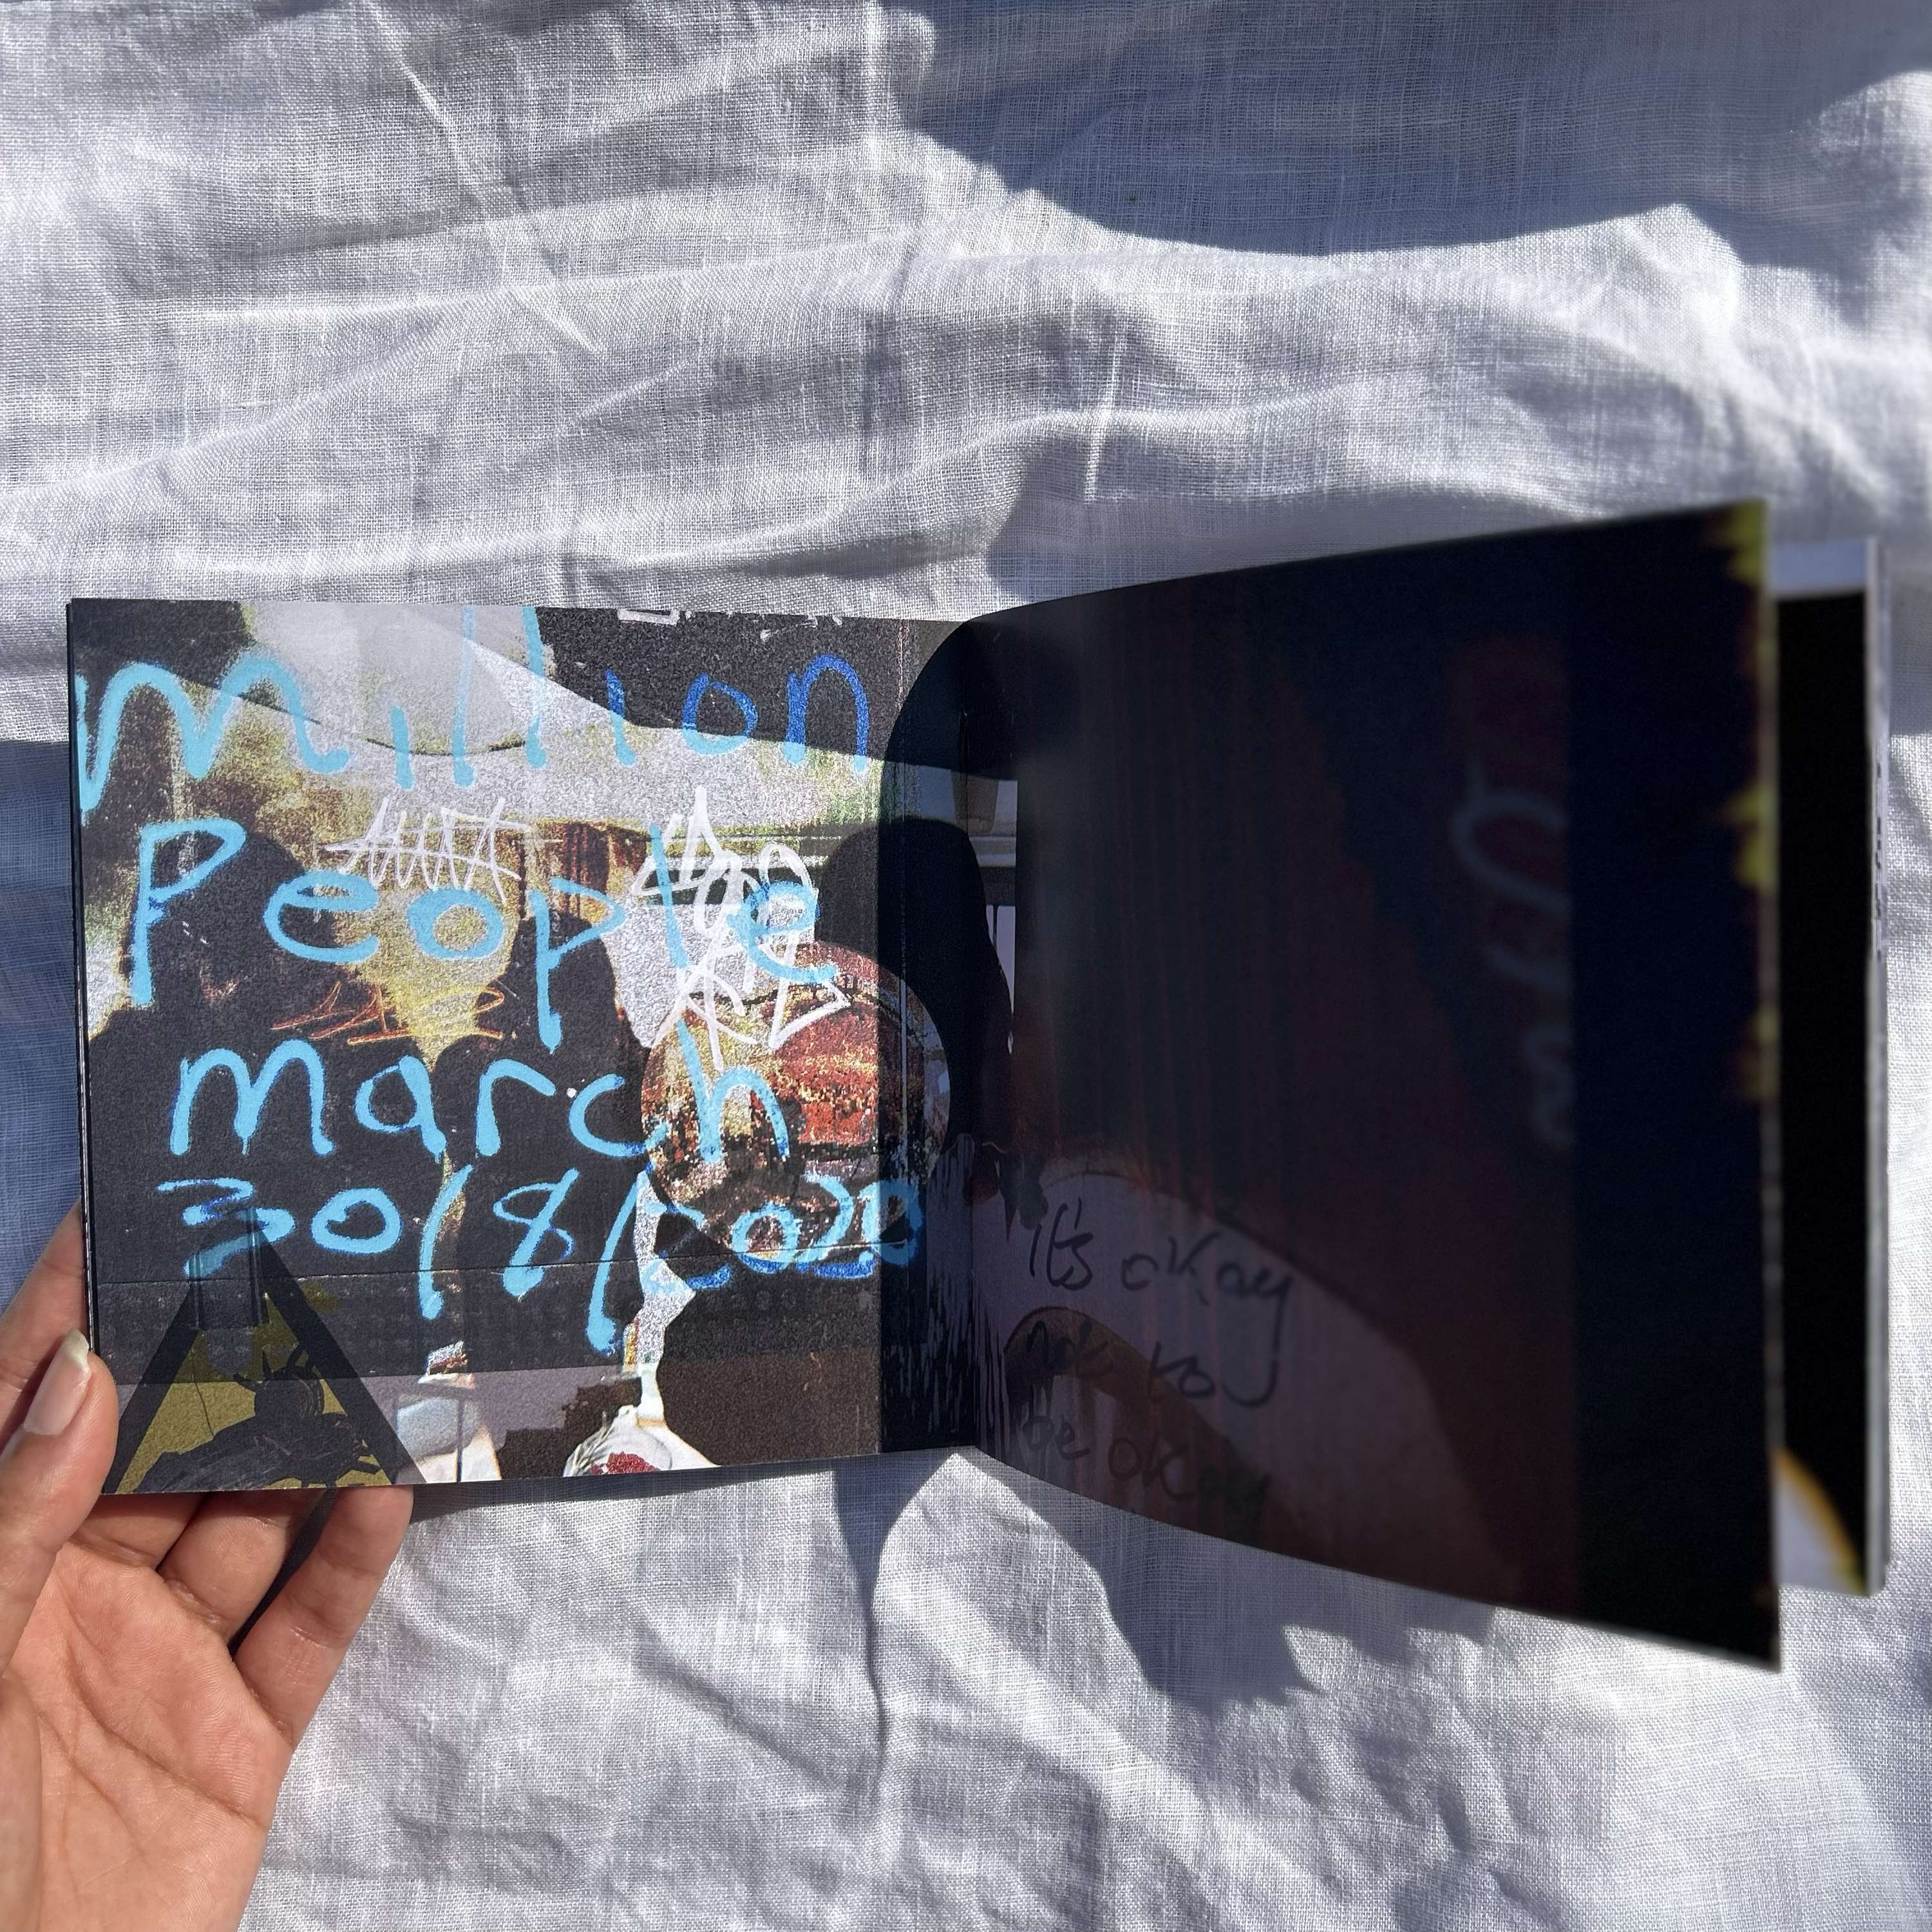 million
People
march
30/8/2020
it's okay
not to
be okay